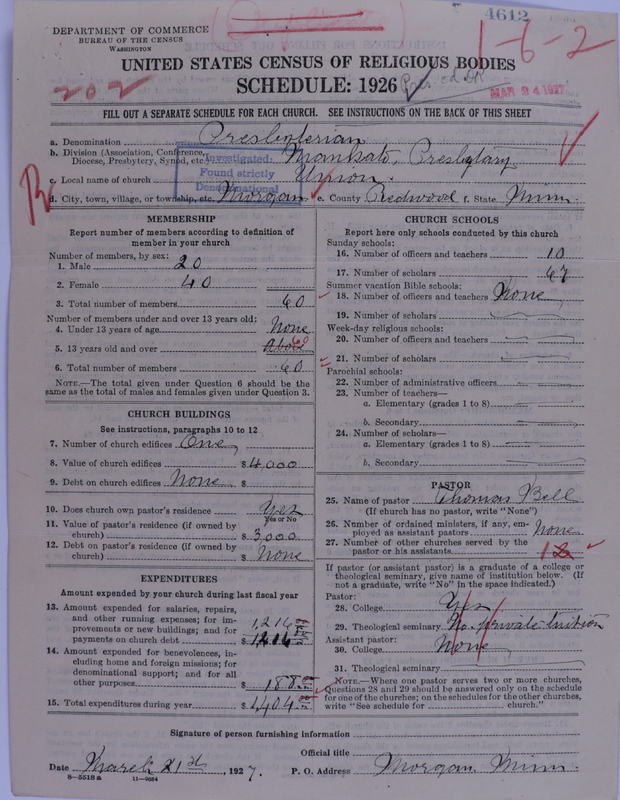 4612
DEPARTMENT OF COMMERCE
BUREAU OF THE CENSUS
WASHINGTON
1-6-2
UNITED STATES CENSUS OF RELIGIOUS BODIES
SCHEDULE: 1926
202
MAR 24 1927
FILL OUT A SEPARATE SCHEDULE FOR EACH CHURCH. SEE INSTRUCTIONS ON THE BACK OF THIS SHEET
a. Denomination Presbyterian
b. Division (Association, Conference, Diocese, Presbytery, Synod, etc. Mankato, Presbytary
Investigated
Found strictly
Denominational
c. Local name of church Union.
d. City, town, village, or township, etc. Morgan e. County Redwood f. State Minn.
MEMBERSHIP
Report number of members according to definition of
member in your church
Number of members, by sex:
1. Male 20
2. Female 40
3. Total number of members 60
Number of members under and over 13 years old:
4. Under 13 years of age None
5. 13 years old and over Above 60
6. Total number of members 60
NOTE.—The total given under Question 6 should be
same as the total of males and females given under Question 3.
CHURCH BUILDINGS
See instructions, paragraphs 10 to 12
7. Number of church edifices One
8. Value of church edifices $4000
9. Debt on church edifices None $
10. Does church own pastor's residence Yes
Yes or No
11. Value of pastor's residence (if owned by
church) $3000
12. Debt on pastor's residence (if owned by
church) $ None
EXPENDITURES
Amount expended by your church during last fiscal year
13. Amount expended for salaries, repairs,
and other running expenses; for im-
provements or new buildings; and for
payments on church debt 1,216
$1216
14. Amount expended for benevolences, in-
cluding home and foreign missions; for
denominational support; and for all
other purposes $ 188
15. Total expenditures during year $1,404
CHURCH SCHOOLS
Report here only schools conducted by this church
Sunday schools:
16. Number of officers and teachers 10
17. Number of scholars 67
Summer vacation Bible schools:
18. Number of officers and teachers None
19. Number of scholars
Week-day religious schools:
20. Number of officers and teachers
21. Number of scholars
Parochial schools:
22. Number of administrative officers
23. Number of teachers—
a. Elementary (grades 1 to 8)
b. Secondary
24. Number of scholars—
a. Elementary (grades 1 to 8)
b. Secondary
PASTOR
25. Name of pastor Thomas Bell
(If church has no pastor, write "None")
26. Number of ordained ministers, if any, em-
ployed as assistant pastors None
27. Number of other churches served by the
pastor or his assistants 1
If pastor (or assistant pastor) is a graduate of a college or
theological seminary, give name of institution below. (If
not a graduate, write "No" in the space indicated.)
Pastor:
28. College Yes
29. Theological seminary No. private tuition
Assistant pastor:
30. College None
31. Theological seminary
NOTE.—Where one pastor serves two or more churches,
Questions 28 and 29 should be answered only on the schedule
for one of the churches; on the schedules for the other churches,
write "See schedule for church."
Signature of person furnishing information
Official title
Date March 21st, 1927. P. O. Address Morgan, Minn.
8-5518 a 11-9684